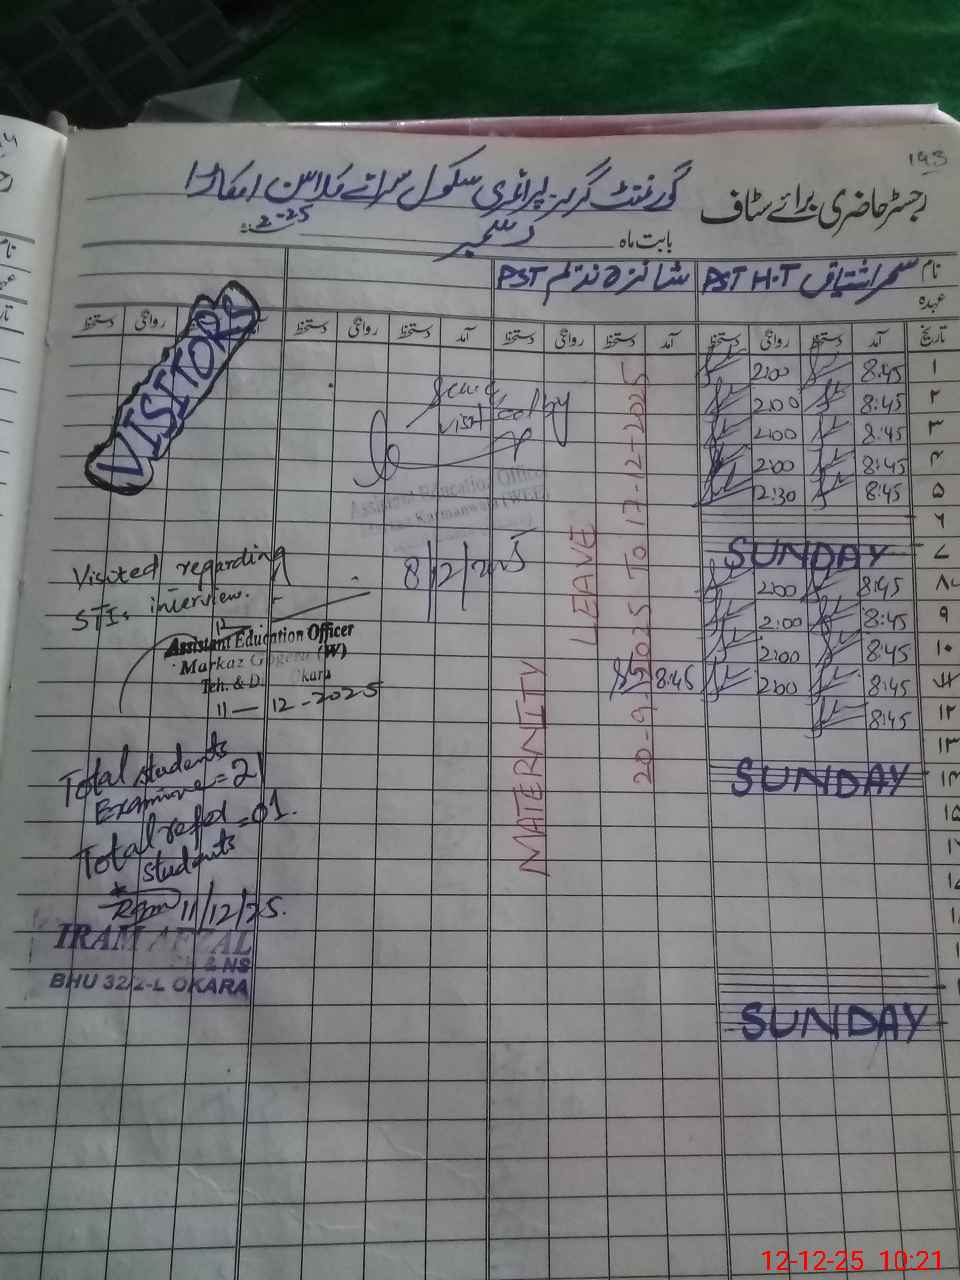 193
رجسٹر حاضری برائے سٹاف
گورنمنٹ گرلز پرائمری سکول سرائے
بابت ماہ دسمبر
نام
PST H.T
PST
عہدہ
تاریخ آمد دستخط روانگی دستخط آمد دستخط روانگی دستخط آمد دستخط روانگی دستخط روانگی دستخط
VISITORS
۱ 8:45 2:00
۲ 8:45 2:00
۳ 8:45 2:00
8:45 2:00
۵ 8:45 12:30
۶
۷ SUNDAY
۸ 8:45 2:00
۹ 8:45 2:00
۱۰ 8:45 2:00
۱۱ 8:45 2:00 8:45
۱۲ 8:45
۱۳
SUNDAY
SUNDAY
MATERNITY LEAVE
20-9-2025 To 17-12-2025
visited by
Assistant Education Officer
8/12/2025
Visited regarding
STIs interview.
Assistant Education Officer
Markaz Gogera (W)
Teh. & D. Okara
11-12-2025
Total students
Examine = 21
Total refed = 01.
students
11/12/25.
IRAM AFZAL
& NS
BHU 32/2-L OKARA
12-12-25 10:21